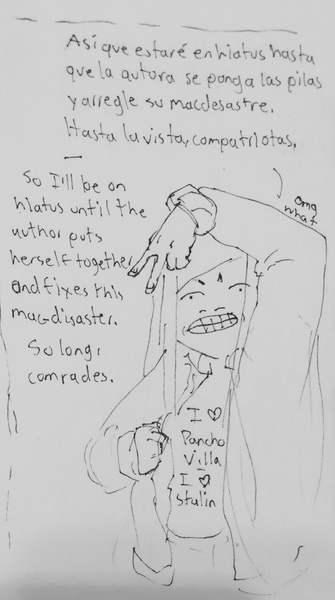 Así que estaré en hiatus hasta
que la autora se ponga las pilas
y arregle su macdesastre.
Hasta la vista, compatriotas.
So I'll be on
hiatus until the
author puts
herself together
and fixes this
mac-disaster.
So long,
comrades.
omg
what
I ♡
Pancho
Villa
I ♡
Stalin